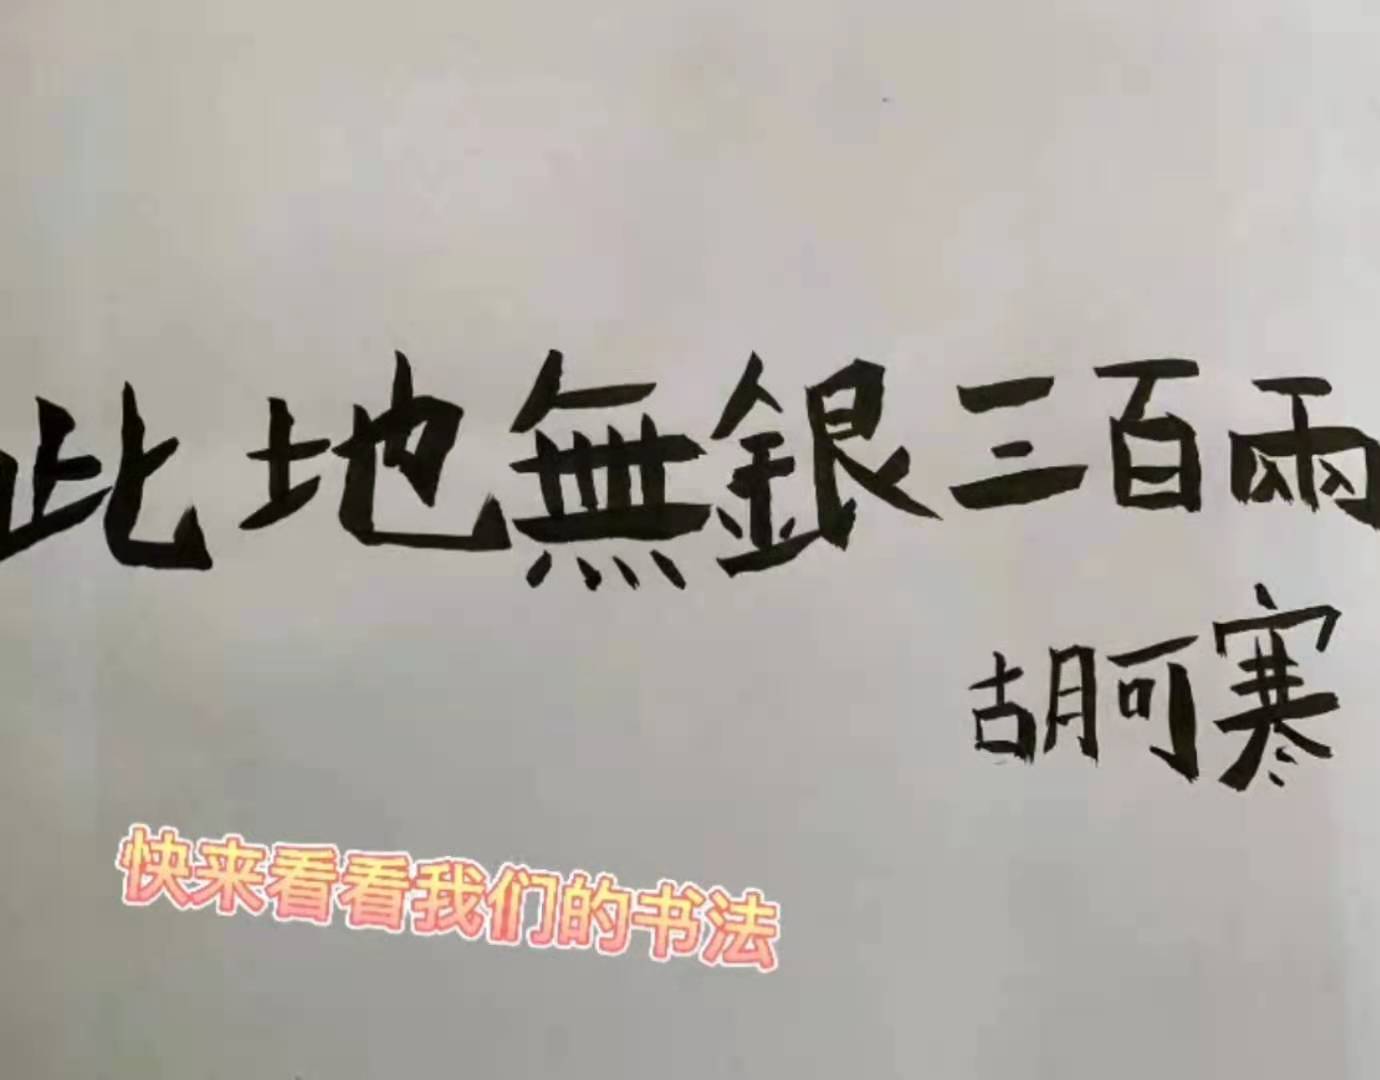 此地無銀三百兩
胡可寒
快来看看我们的书法